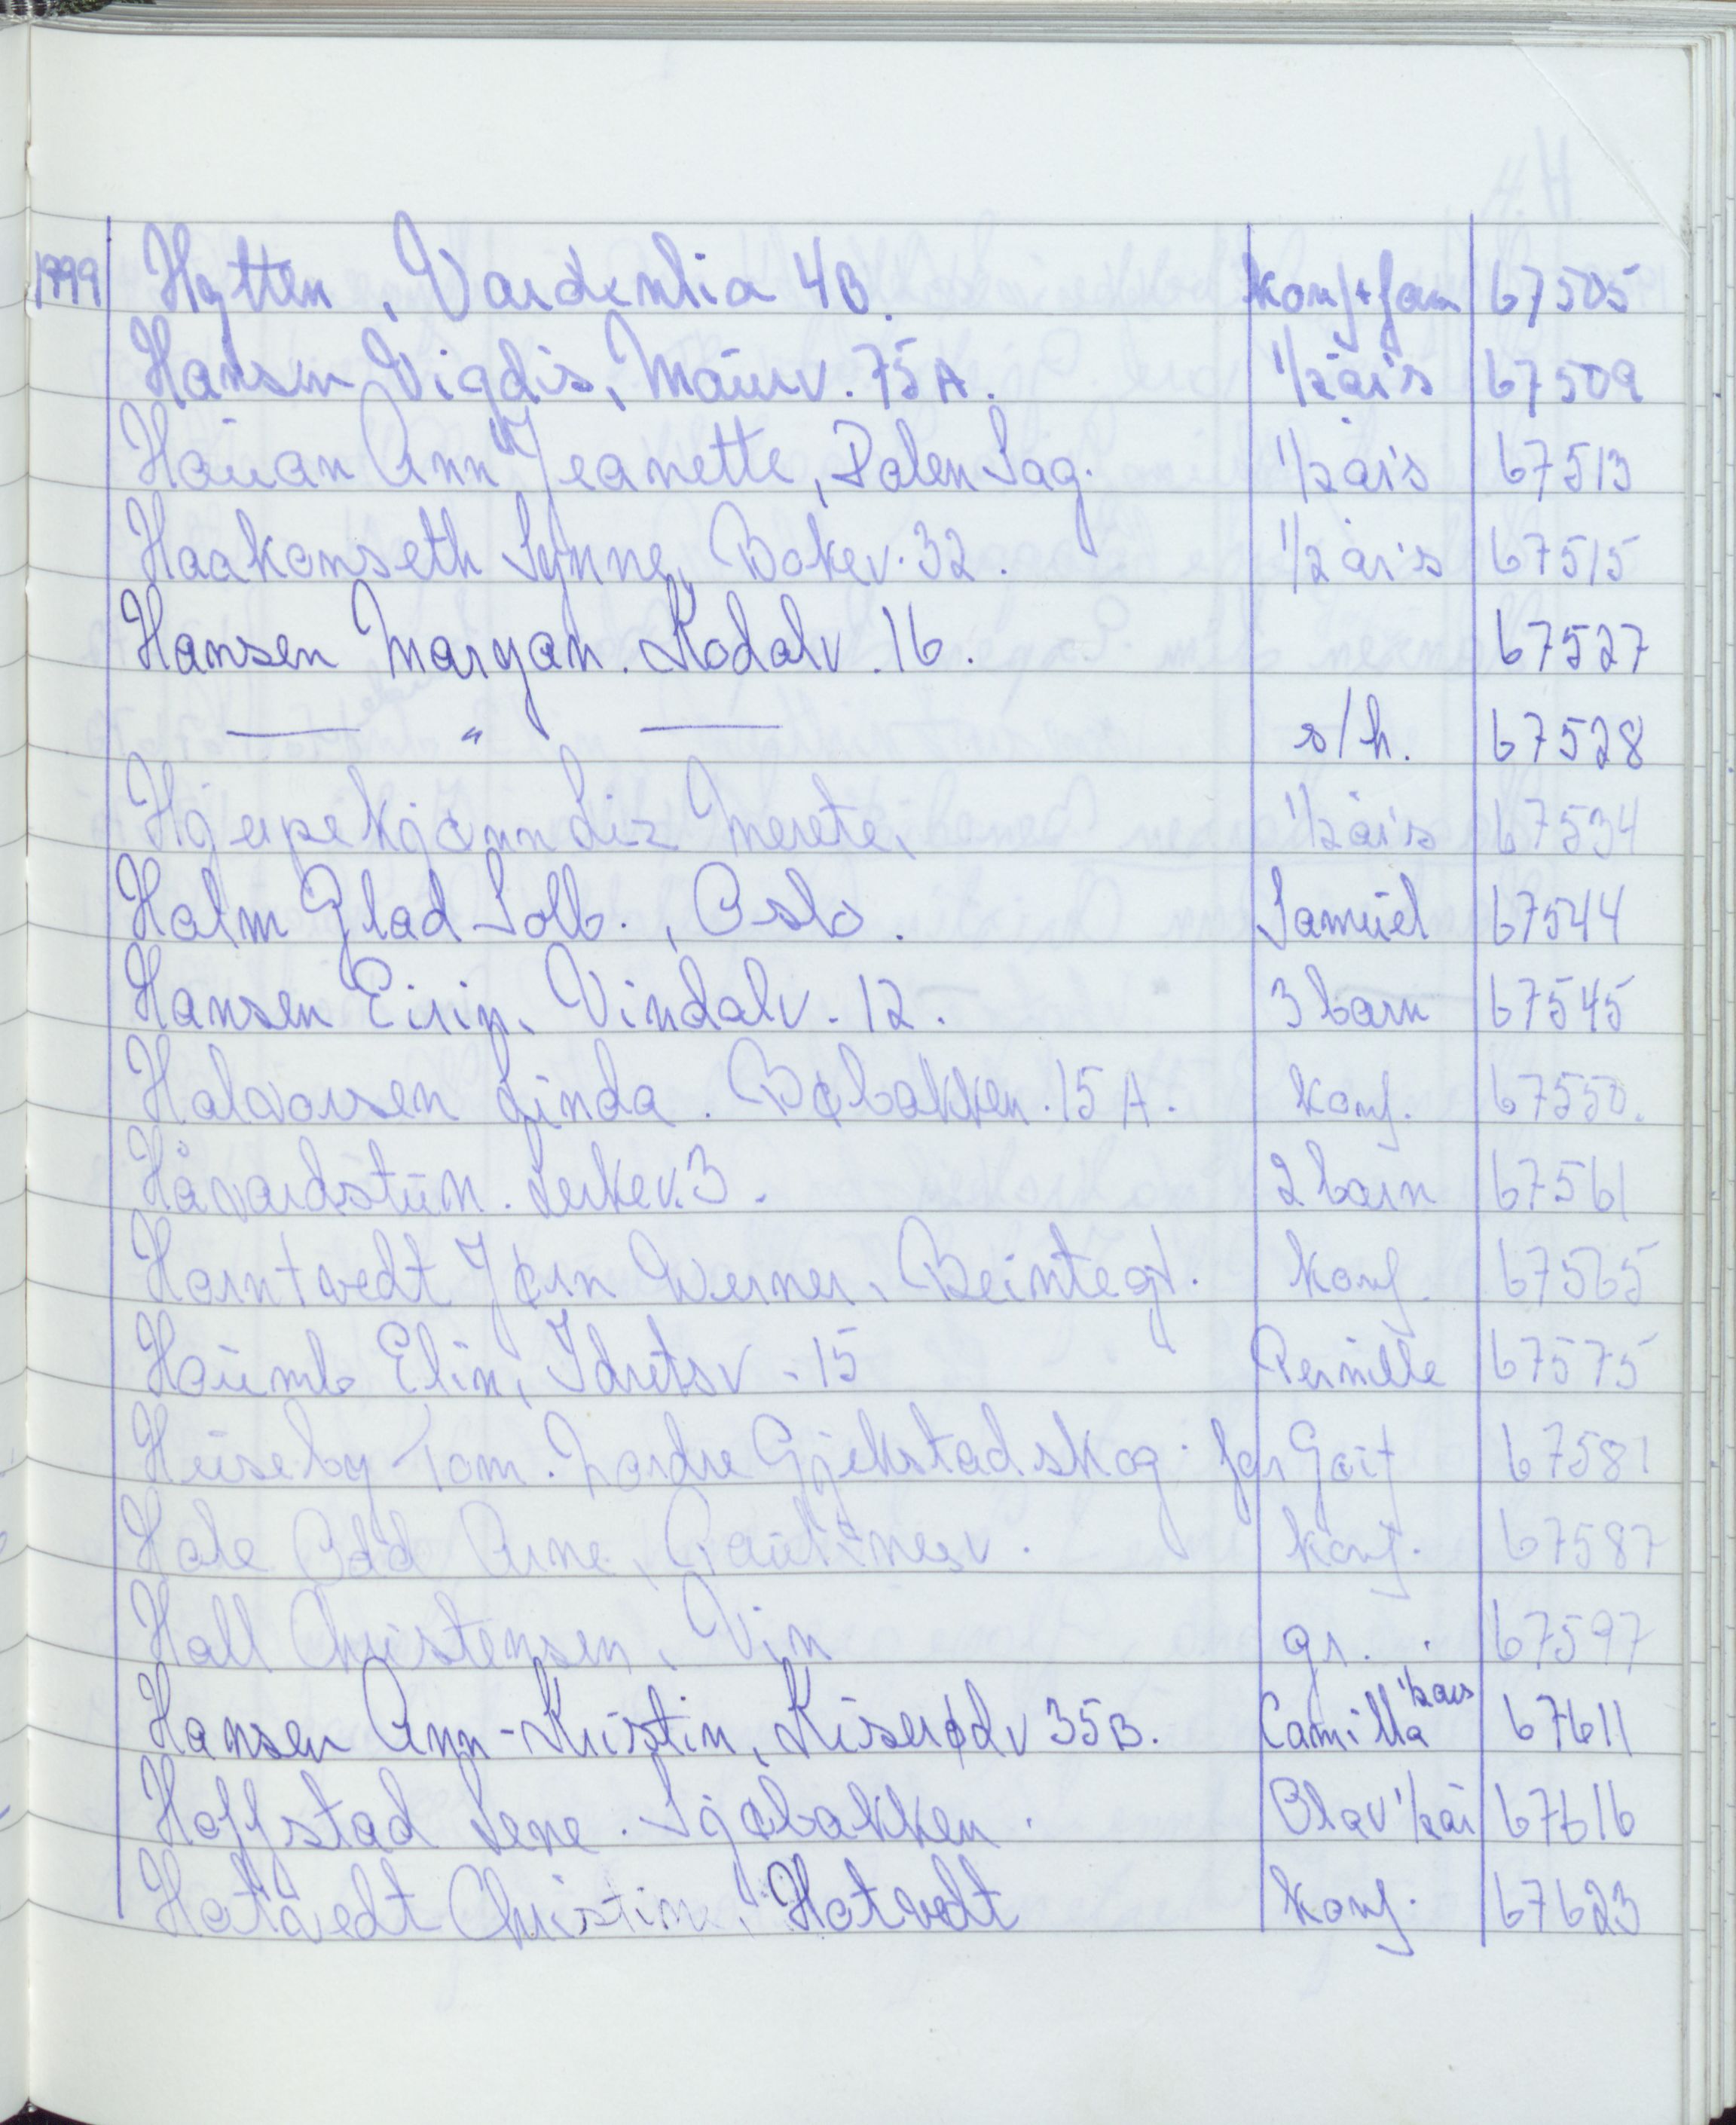 1999 Hytten, Vardenlia 4B. konf+fam 67505
Hansen Vigdis, Maurv. 75A. 1/2 års 67509
Hauan Ann Jeanette, Dalen Sag. 1/2 års 67513
Haakonseth Synne, Bokev. 32. 1/2 års 67515
Hansen Maryan. Kodalv. 16. 67527
— " — s/h. 67528
Hjerpekjønn Liz Merete, 1/2 års 67534
Holm Glad Solb., Oslo. Samuel 67544
Hansen Eirin, Vindalv. 12. 3 barn 67545
Halvorsen Linda. Bøbakken. 15 A. konf. 67550.
Håvardstun. Lerkev. 3. 2 barn 67561
Horntvedt Jørn Werner, Beintegt. konf. 67565
Haumb Elin, Idretsv. 15 Pernille 67575
Huseby Tom. Nordre Gjekstad skog. for Goif 67581
Hole Odd Arne, konf. 67587
Hall Christensen, Vin gr. 67597
Hansen Ann-Kristin, Kiserødv 35B. Camilla 1/2 års 67611
Hoffstad Lene. Sjøbakken. Olav 1/2 år 67616
Hotvedt Christine, Hotvedt konf. 67623